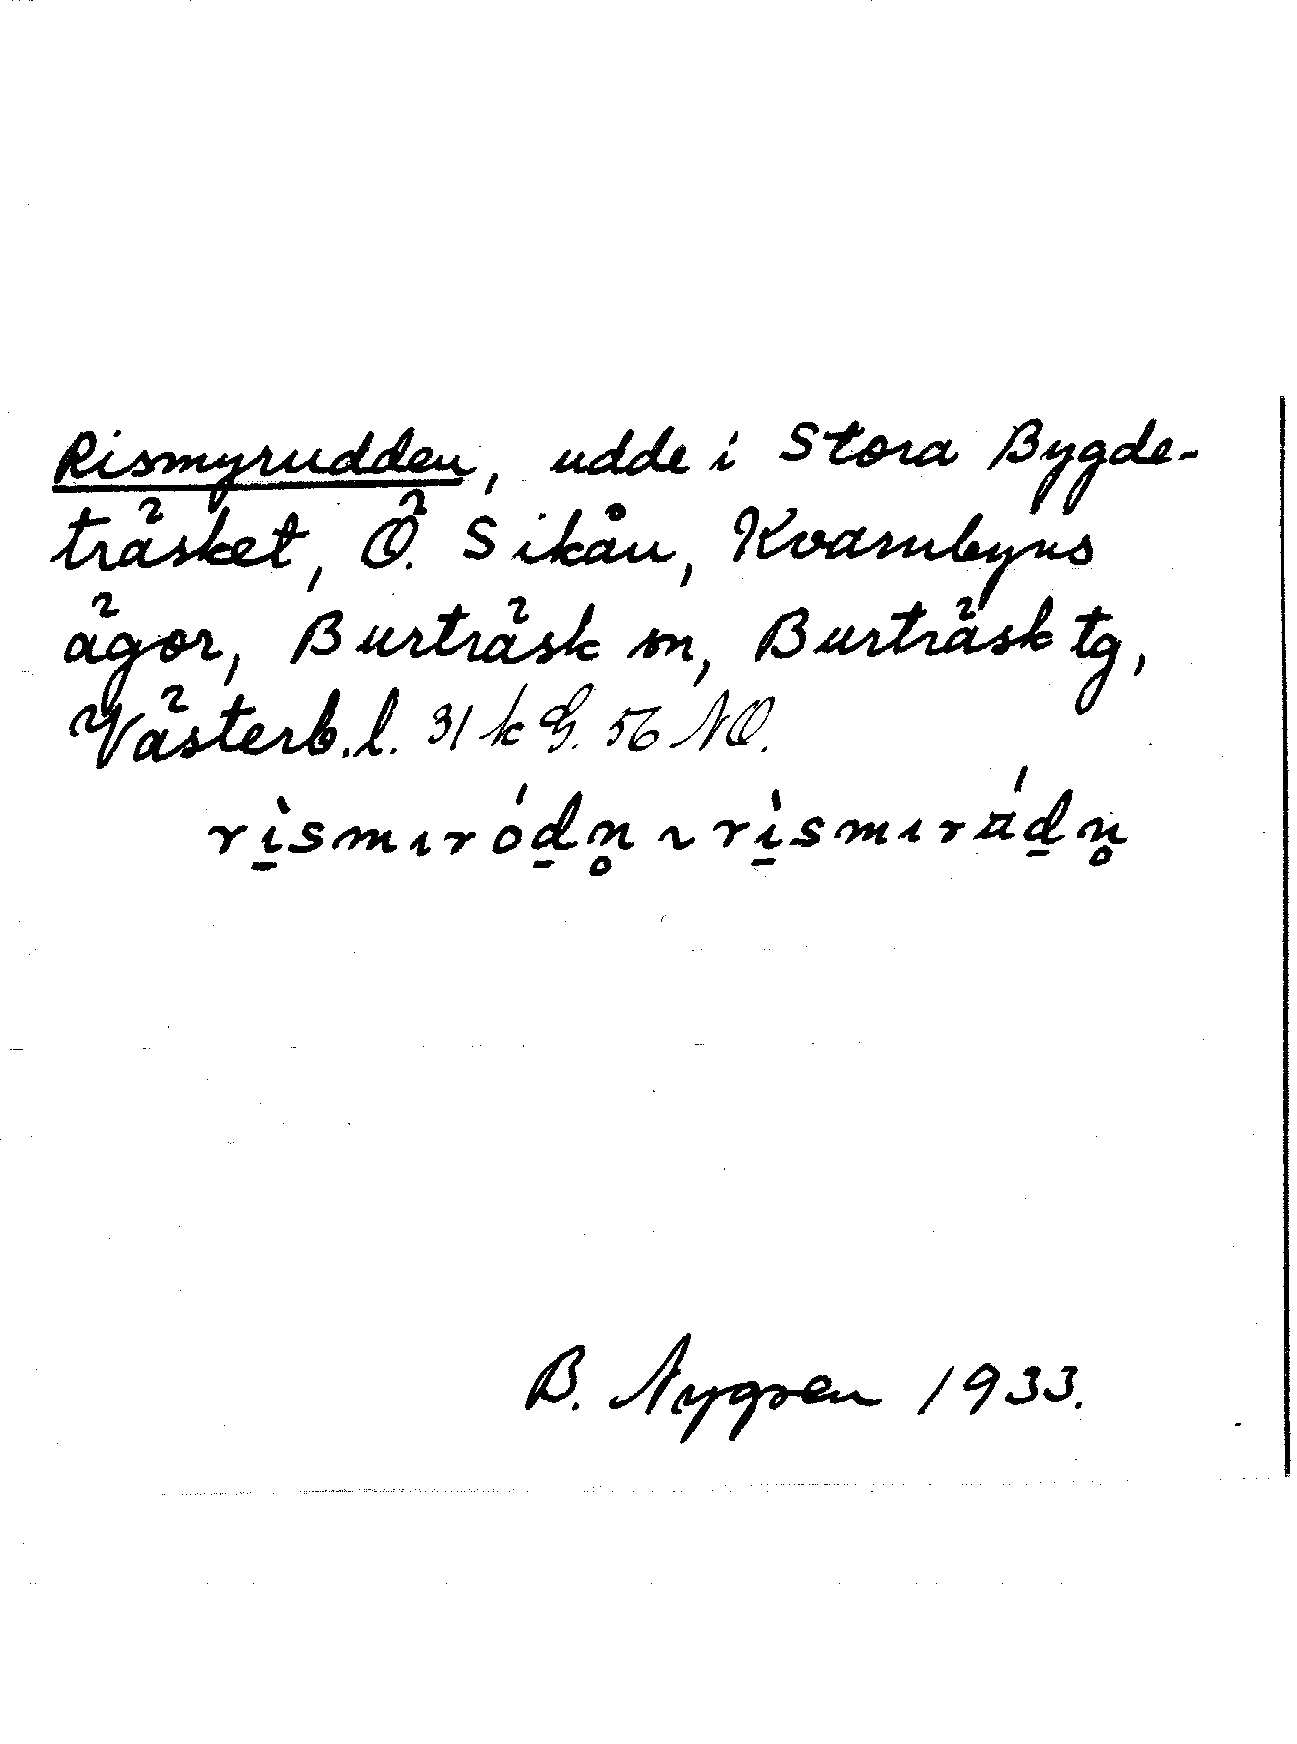 Rismyrudden, udde i Stora Bygde-
träsket, Ö. Sikån, Kvarnbyns
ägor, Burträsk sn, Burträsk tg,
Västerb. l. 31 k G. 56 NO.
rì̱smıróḏn̥ ~ rì̱smır¤́ḏn̥
B. Nygren 1933.